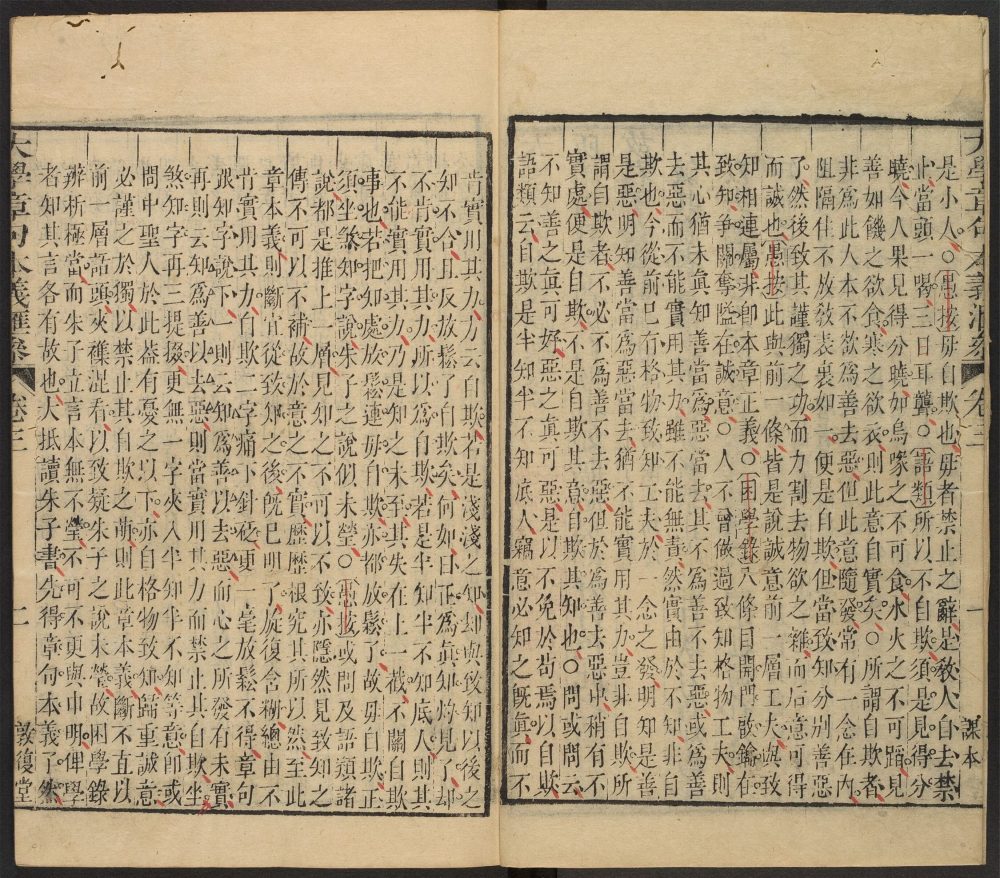 大學章句本義匯參 卷三 一 課本
是小人○愚按毋自欺也毋者禁止之辭是教人自去禁
止當頭一喝三日耳聾○語類所以不自欺須是見得分
曉今人果見得分曉如烏喙之不可食水火之不可蹈見
善如饑之欲食寒之欲衣則此意自實矣○所謂自欺者
非爲此人本不欲爲善去惡但此意隨發常有一念在內
阻隔住不放敎表裏如一便是自欺但當致知分別善惡
了然後致其謹獨之功而力割去物欲之雜而后意可得
而誠也愚按此與前一條皆是說誠意前一層工夫致
知相連屬非卽本章正義○困學錄八條目開門啟鑰在
致知爭關奪隘在誠意○人不曾做過致知格物工夫則
其心猶未眞知善當爲惡當去其不爲善不去惡或爲善
去惡而不能實用其力雖不能無責然實由於不知非自
欺也今從前已有格物致知工夫於一念之發明知是善
是惡明知善當爲惡當去猶不能實用其力豈非自欺所
謂自欺者不必不爲善不去惡但於爲善去惡中稍有不
實處便是自欺不是自欺其意自欺其知也○問或問云
不知善之眞可好惡之眞可惡是以不免於苟焉以自欺
語類云自欺是半知半不知底人竊意必知之旣眞而不
肯實用其力方云自欺若是淺淺之知却與致知以後之
知不合且反放鬆了自欺矣何如曰正爲眞知灼見了却
不肯實用其力所以爲自欺若是半知半不知底人則其
不能實用其力乃是知之未至其失在上一截不關自欺
事也若把知處放鬆連毋自欺亦都放鬆了故毋自欺正
須坐煞知字說朱子之說似未瑩○愚按或問及語類諸
說都是推上一層見知之不可以不致亦隱然見致知之
傳不可以不補故於意之不實歷歷根究其所以然至此
章本義則斷宜從致知之後旣已明了旋復含糊總由不
肯實用其力自欺二字痛下針砭更一毫放鬆不得章句
跟知字說下一則云知爲善以去惡而心之所發有未實
再則云知爲善以去惡則當實用其力而禁止其自欺坐
煞知字再三提掇更無一字夾入半知半不知等意卽或
問中聖人於此葢有憂之以下亦自格物致知歸重誠意
必謹之於獨以禁止其自欺之萌則此章本義斷不宜以
前一層話頭夾雜混看以致疑朱子之說未瑩故困學錄
辨析極當而朱子立言本無不瑩不可不更與申明俾學
者知其言各有故也大抵讀朱子書先得章句本義了然
大學章句本義匯參 卷三 二 敦復堂